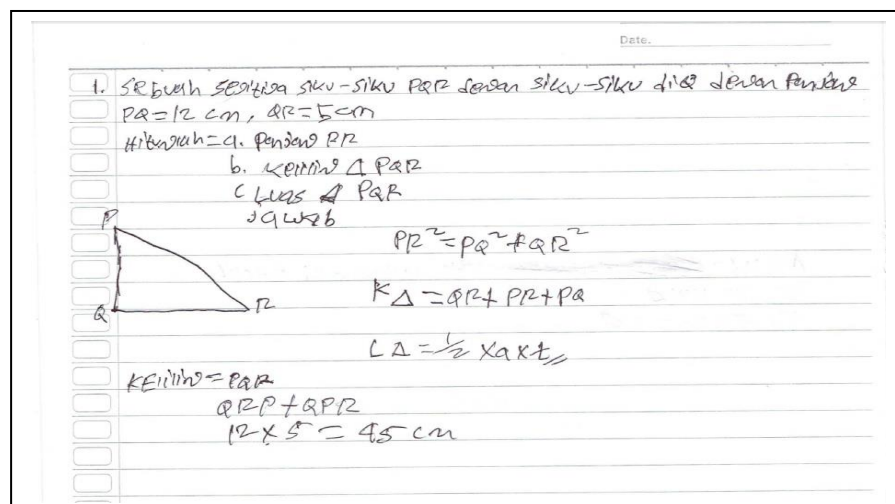 Date.
1. Sebuah segitiga siku-siku PQR dengan siku-siku di Q dengan panjang
PQ = 12 cm, QR = 5 cm
Hitunglah = a. Panjang PR
b. Keliling Δ PQR
c Luas Δ PQR
Jawab
P
PR² = PQ² + QR²
K Δ = QR + PR + PQ
Q R
L Δ = 1/2 x a x t //
Keliling = PQR
QRP + QPR
12 x 5 = 45 cm